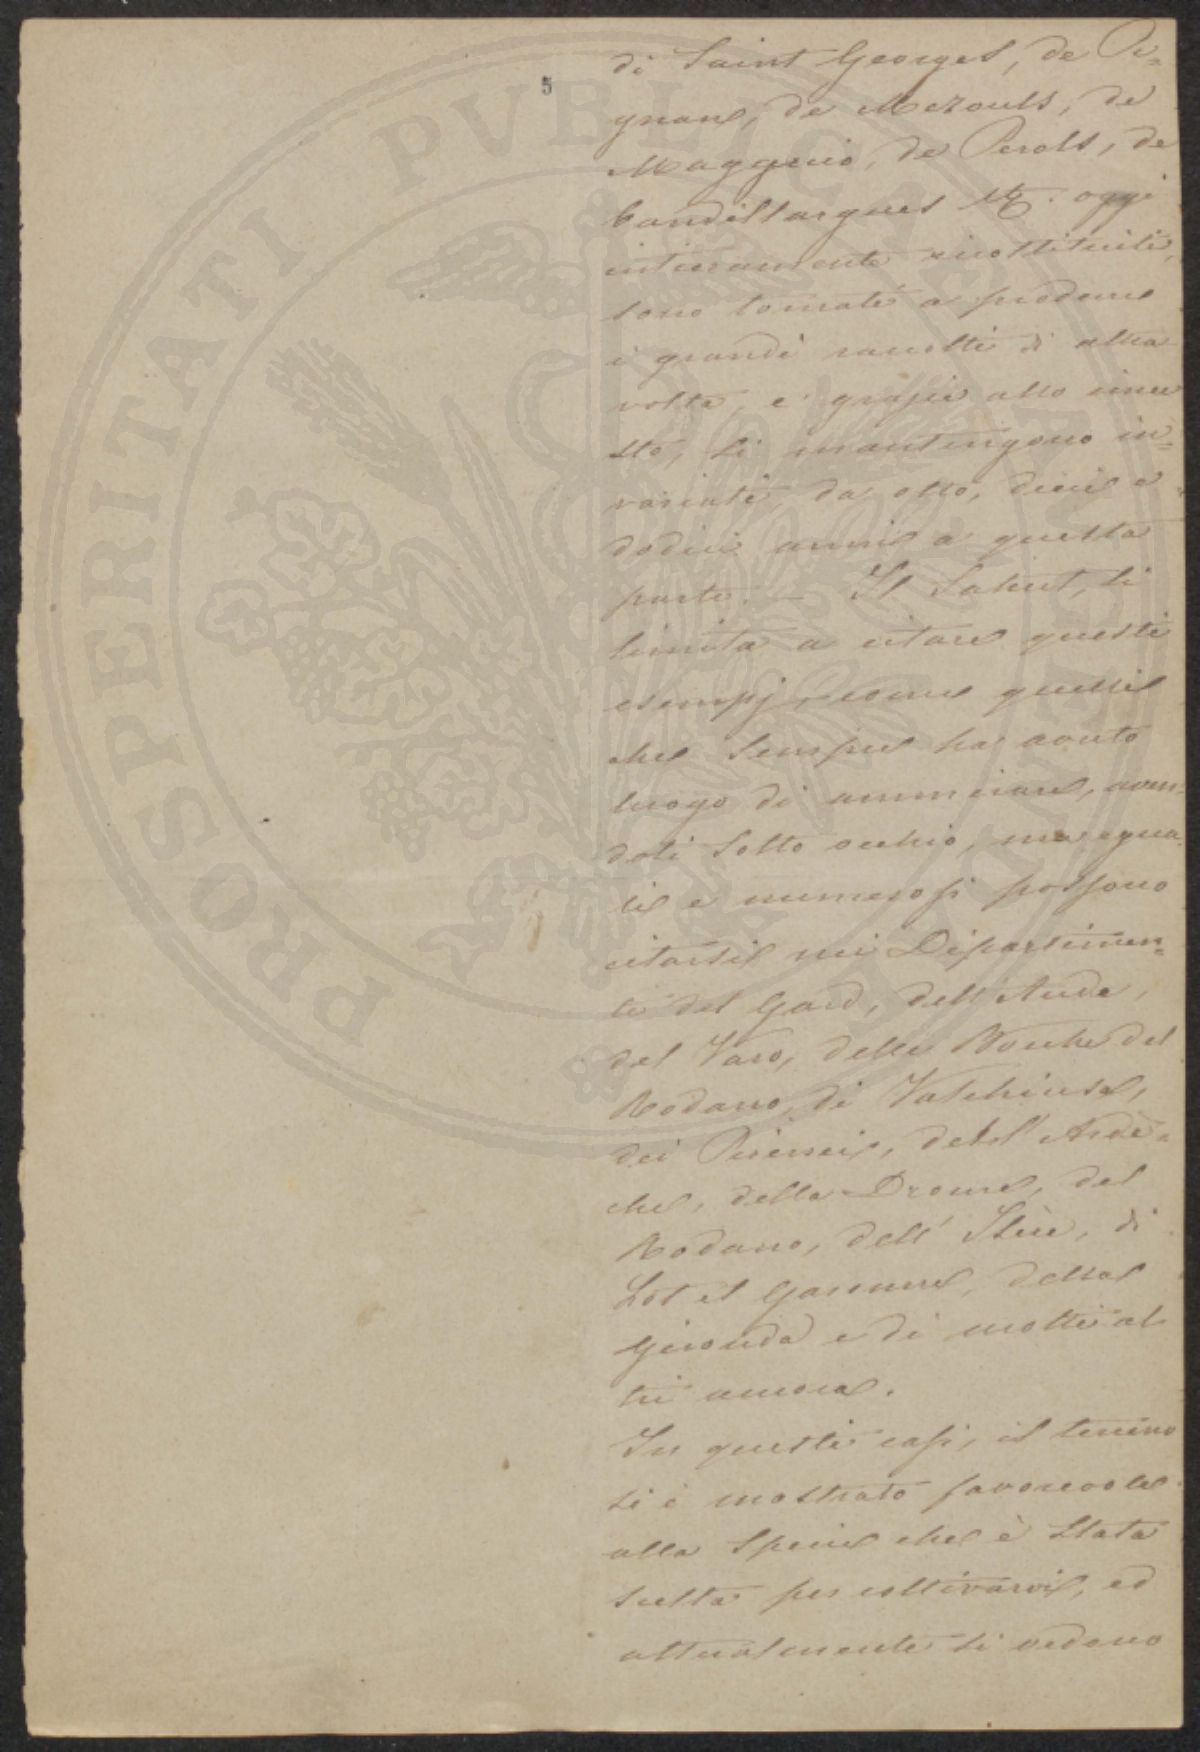 5
di Saint Georges, de Pi=
gnan, de Mezouls, de
Mogguio, de Perols, de
Candillargues &. oggi
interamente ricostituiti,
sono tornati a produrre
i grandi raccolti di altra
volta, e grazie allo inne
sto, si mantengono in=
variati, da otto, dieci e
dodici anni a questa
parte. — Il Sahut, si
limita a citare questi
esempj, come quelli
che sempre ha avuto
luogo di annunciare, aven=
doli sotto occhio, ma egua
li e numerosi possono
citarsi nei Dipartimen=
ti del Gard, dell'Aude,
del Varo, delle Bouche del
Rodano, di Valchiusa,
dei Pirenei, dell'Ardè=
che, della Drome, del
Rodano, dell'Isère, di
Lot et Garonne, della
Gironda e di molti al
tri ancora.
In questi casi, il terreno
si è mostrato favorevole
alla specie che è stata
scelta per coltivarvi, ed
attualmente si vedono
PROSPERITATI PUBLICAE